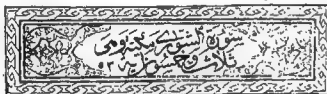 سورة الشورى مكية وهى
ثلاث وخمسون اية ٥٣